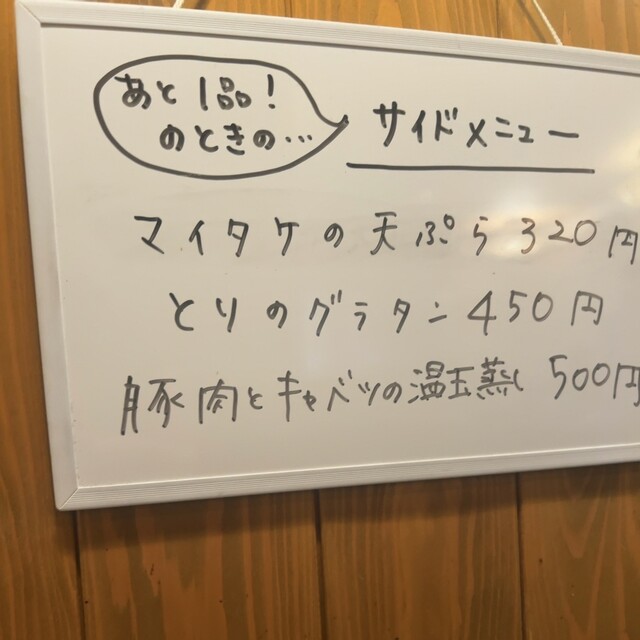 あと1品!
のときの…
サイドメニュー
マイタケの天ぷら 320円
とりのグラタン 450円
豚肉とキャベツの温玉蒸し 500円